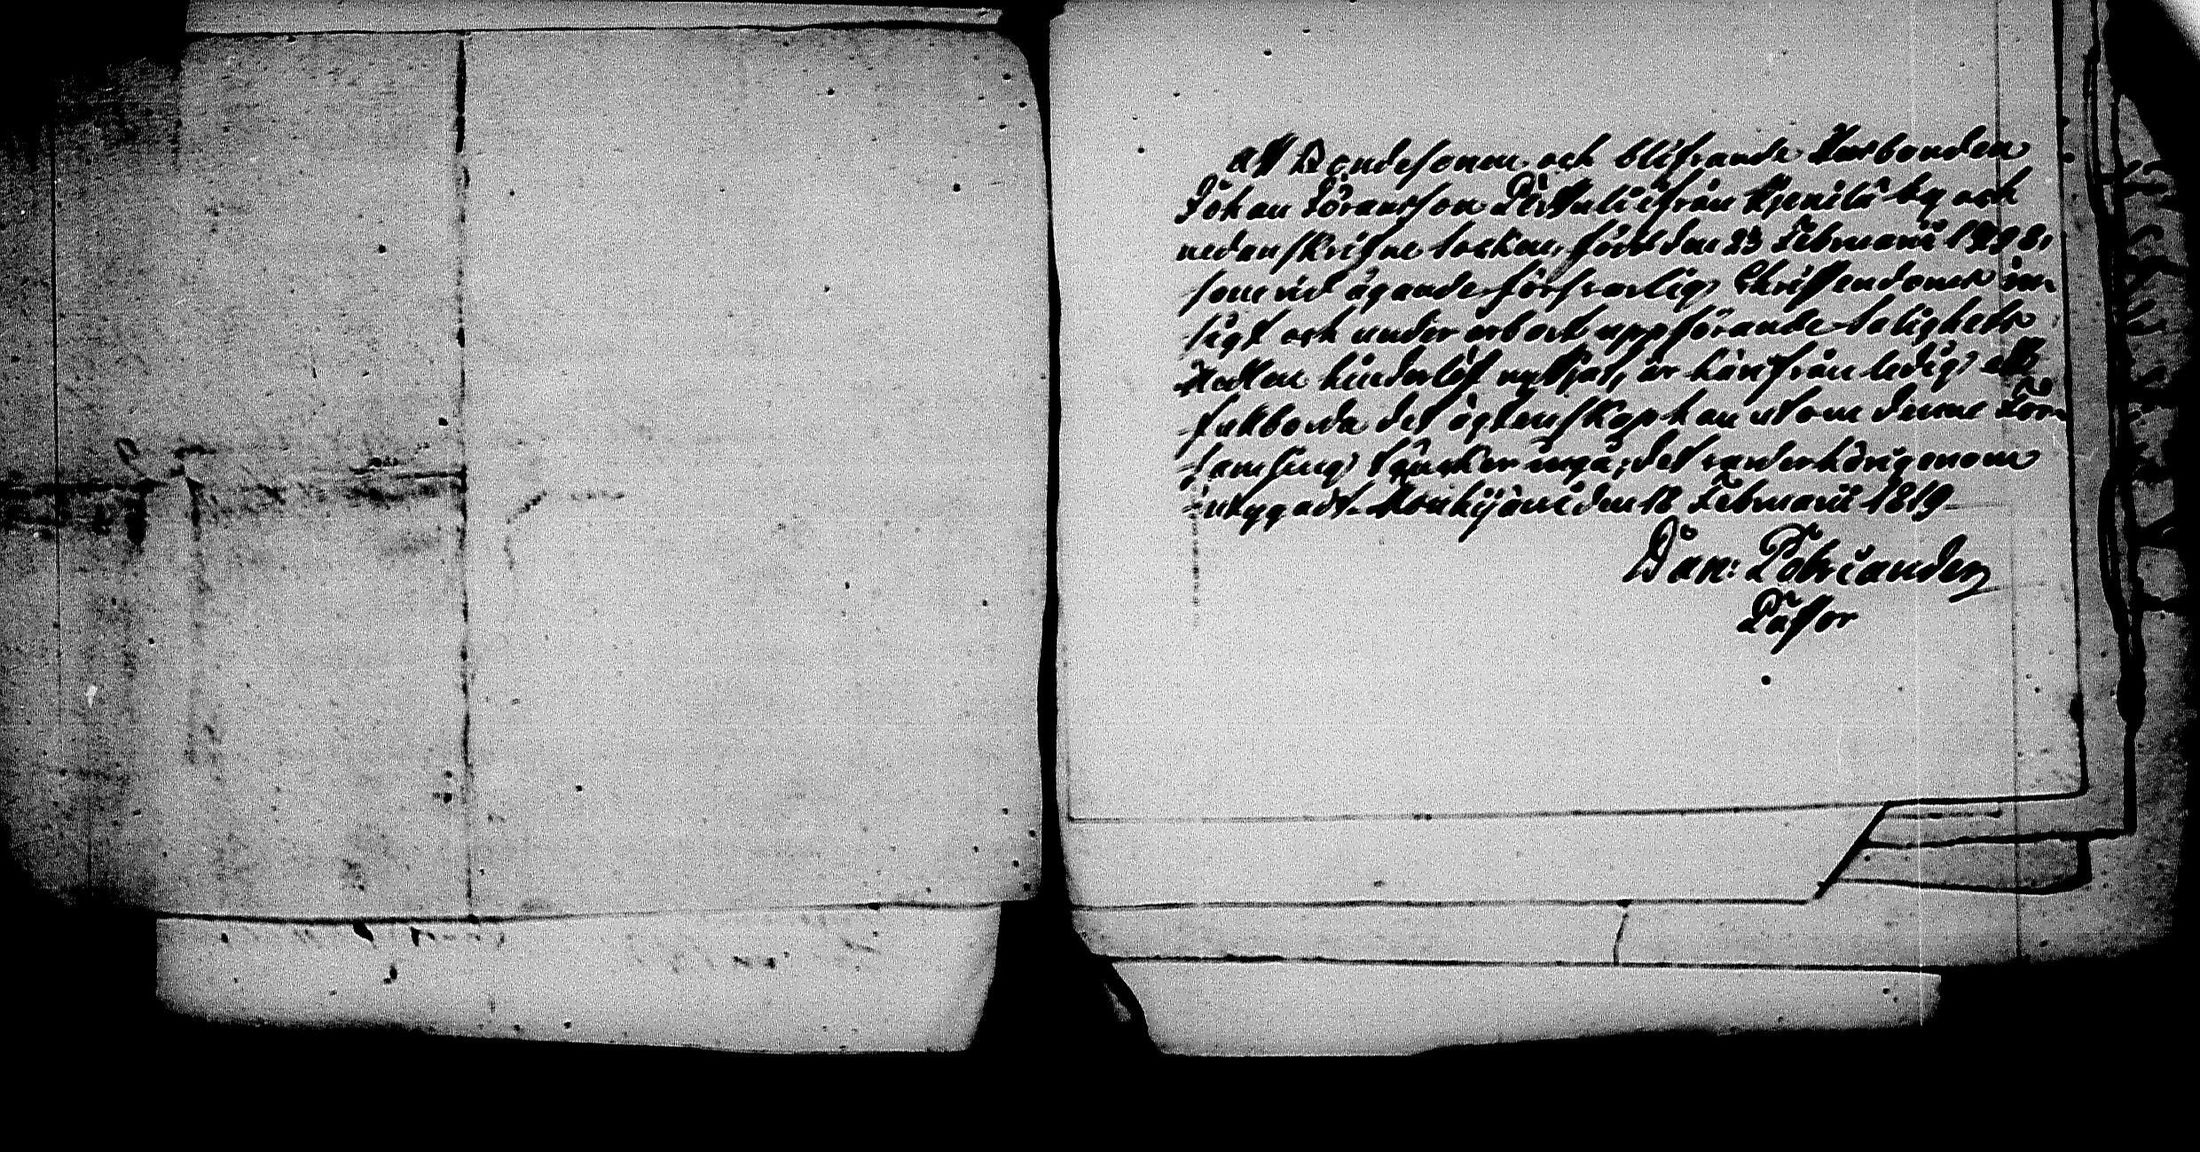 Att Bondesonen och blifvande Husbonden
Johan Göransson från Kjenilä by och
nedanskrifne Sockne, född den 23 Februarii 1798,
som vid ägande försvarlig Christendoms in-
sigt och under ärbart uppförande Salighets
Medlen hinderlöst nyttjat, är härifrån ledig att
fullborda det ägtenskap han utom denne För-
samling tänker ingå; det varder härigenom
intygadt. den 18 Februarii 1819
Dan:
Pastor